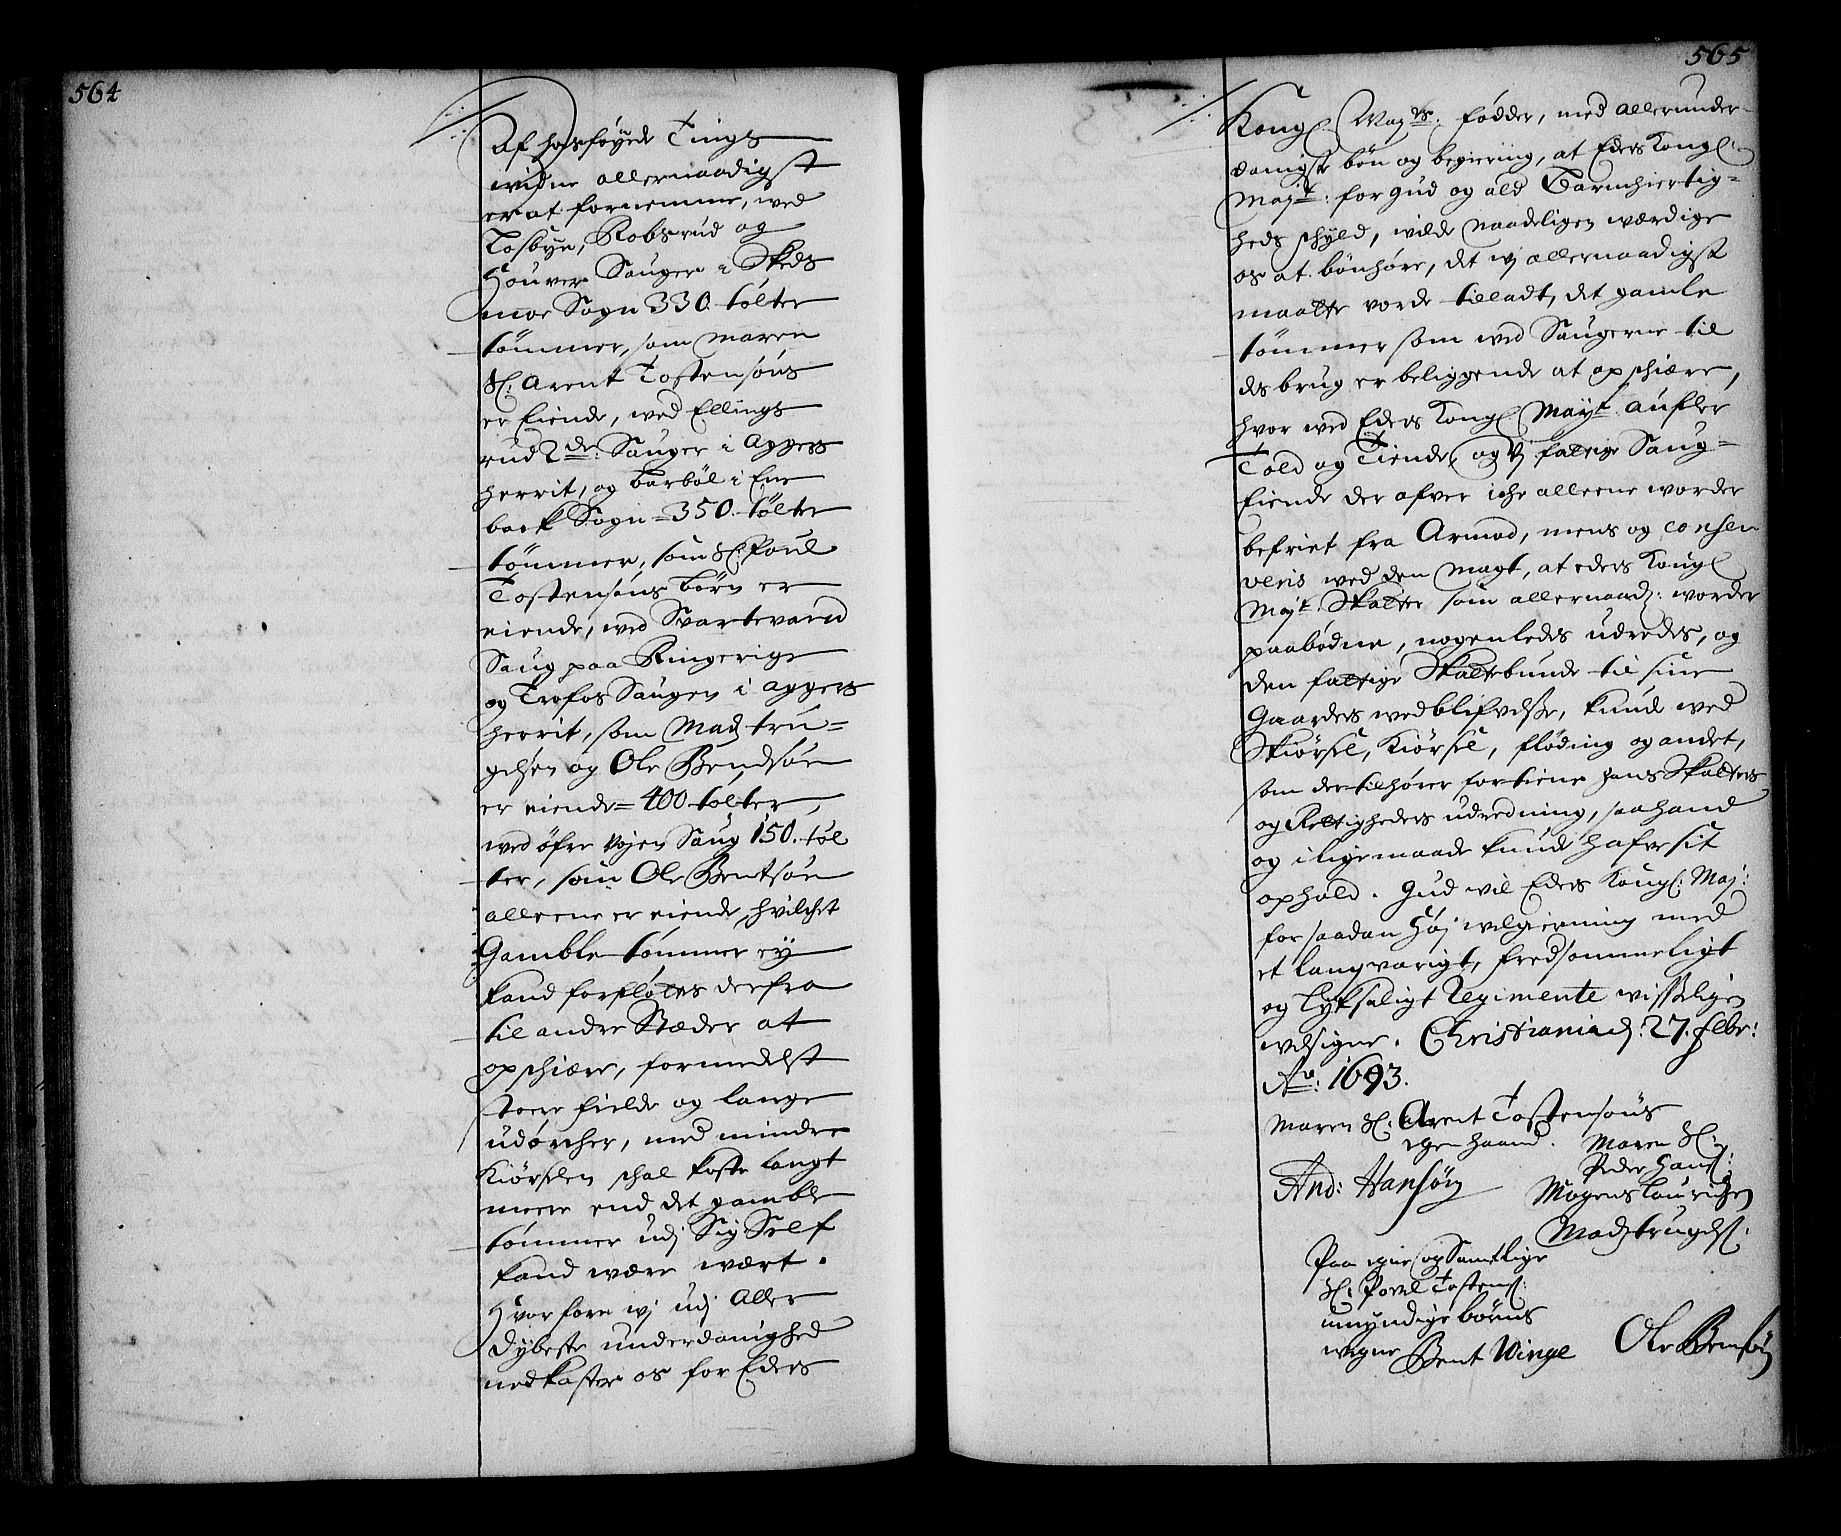 564
Af hosføyede Tings
widne allernaadigst
er at fornemme, wed
Tosbye, Robsrud og
Houver Sauger i Skeds
moe Sogn 330. tolter
tømmer, som Maren
Sl: Arent Tostensøns
er Eiende, wed Ellings
rud 2de: Sauger i Aggers
herrit, og Barbøl i Ene
back Sogn = 350. tølter
tømmer, som Sl: Poul
Tostensøns børn er
eiende, wed Svartevand
Saug paa Ringerige
og Trofos Saugen i Aggers
herrit, som Mads tru=
gelsen og Ole Bendsøn
er eiende = 400 tolter,
wed øfre Vojen Saug 150. tøl
ter, som Ole Bentsøn
alleene er eiende, hvilchet
Gamble tømmer ey
kand forfløttes derfra
til andre Stæder at
opschiære, formedelst
stoere fielde og lange
udørcher, med mindre
Kiørselen schal koste langt
meere end det gamble
tømmer udj Sig Self
kand være wært.
Hvorfore wj udj Aller
dybeste underdanighed
nedkaster os for Eders
565
Kongl Mayts: fødder, med allerunder-
danigste bøn og begiering, at Eders Kongl:
Majt: for Gud og ald Barmhiertig=
heds schyld, wilde Naadeligen wærdige
os at bønhøre, det wj allernaadigst
maatte vorde tilladt, det gamle
tømmer som wed Saugerne til
des brug er beliggende at opschiære,
hvor wed Eders Kongl Mayt. aufler
Told og Tiende, og Vj fattige Saug=
Eiende der ofver iche alleene worder
befriet fra Armod, mens og conser
veris wed dem Magt, at eders Kongl
Mayt. Skatter som allernaad: worder
paabødne, nogenledes udredes, og
den fattige Skattebunde til sine
Gaarders wedblifvelse, kunde wed
Skiørsel, Kiørsel, fløding og andet,
som der tilhører fortiene hans Skatters
og Rettigheders udredning, saa hand
og i ligemaade kunde hafve sit
ophold. Gud wil Eders Kongl: Maj:
for saadan Høj welgierning med
et langvarigt, fredsommeligt
og lyksaligt Regimente wisseligen
welsigne. Christiania d: 27. Febr:
Ao: 1693.
Maren Sl. Arent Tostensøns
egen haand. Maren Sl:
Peder Hans:
And: Hansøn Mogens Lauridsen
Mads trugels:
Paa egne og Samtlige
Sl: Povel Tostens:
umyndige børns
wegne Bent Winge Ole Bensøn